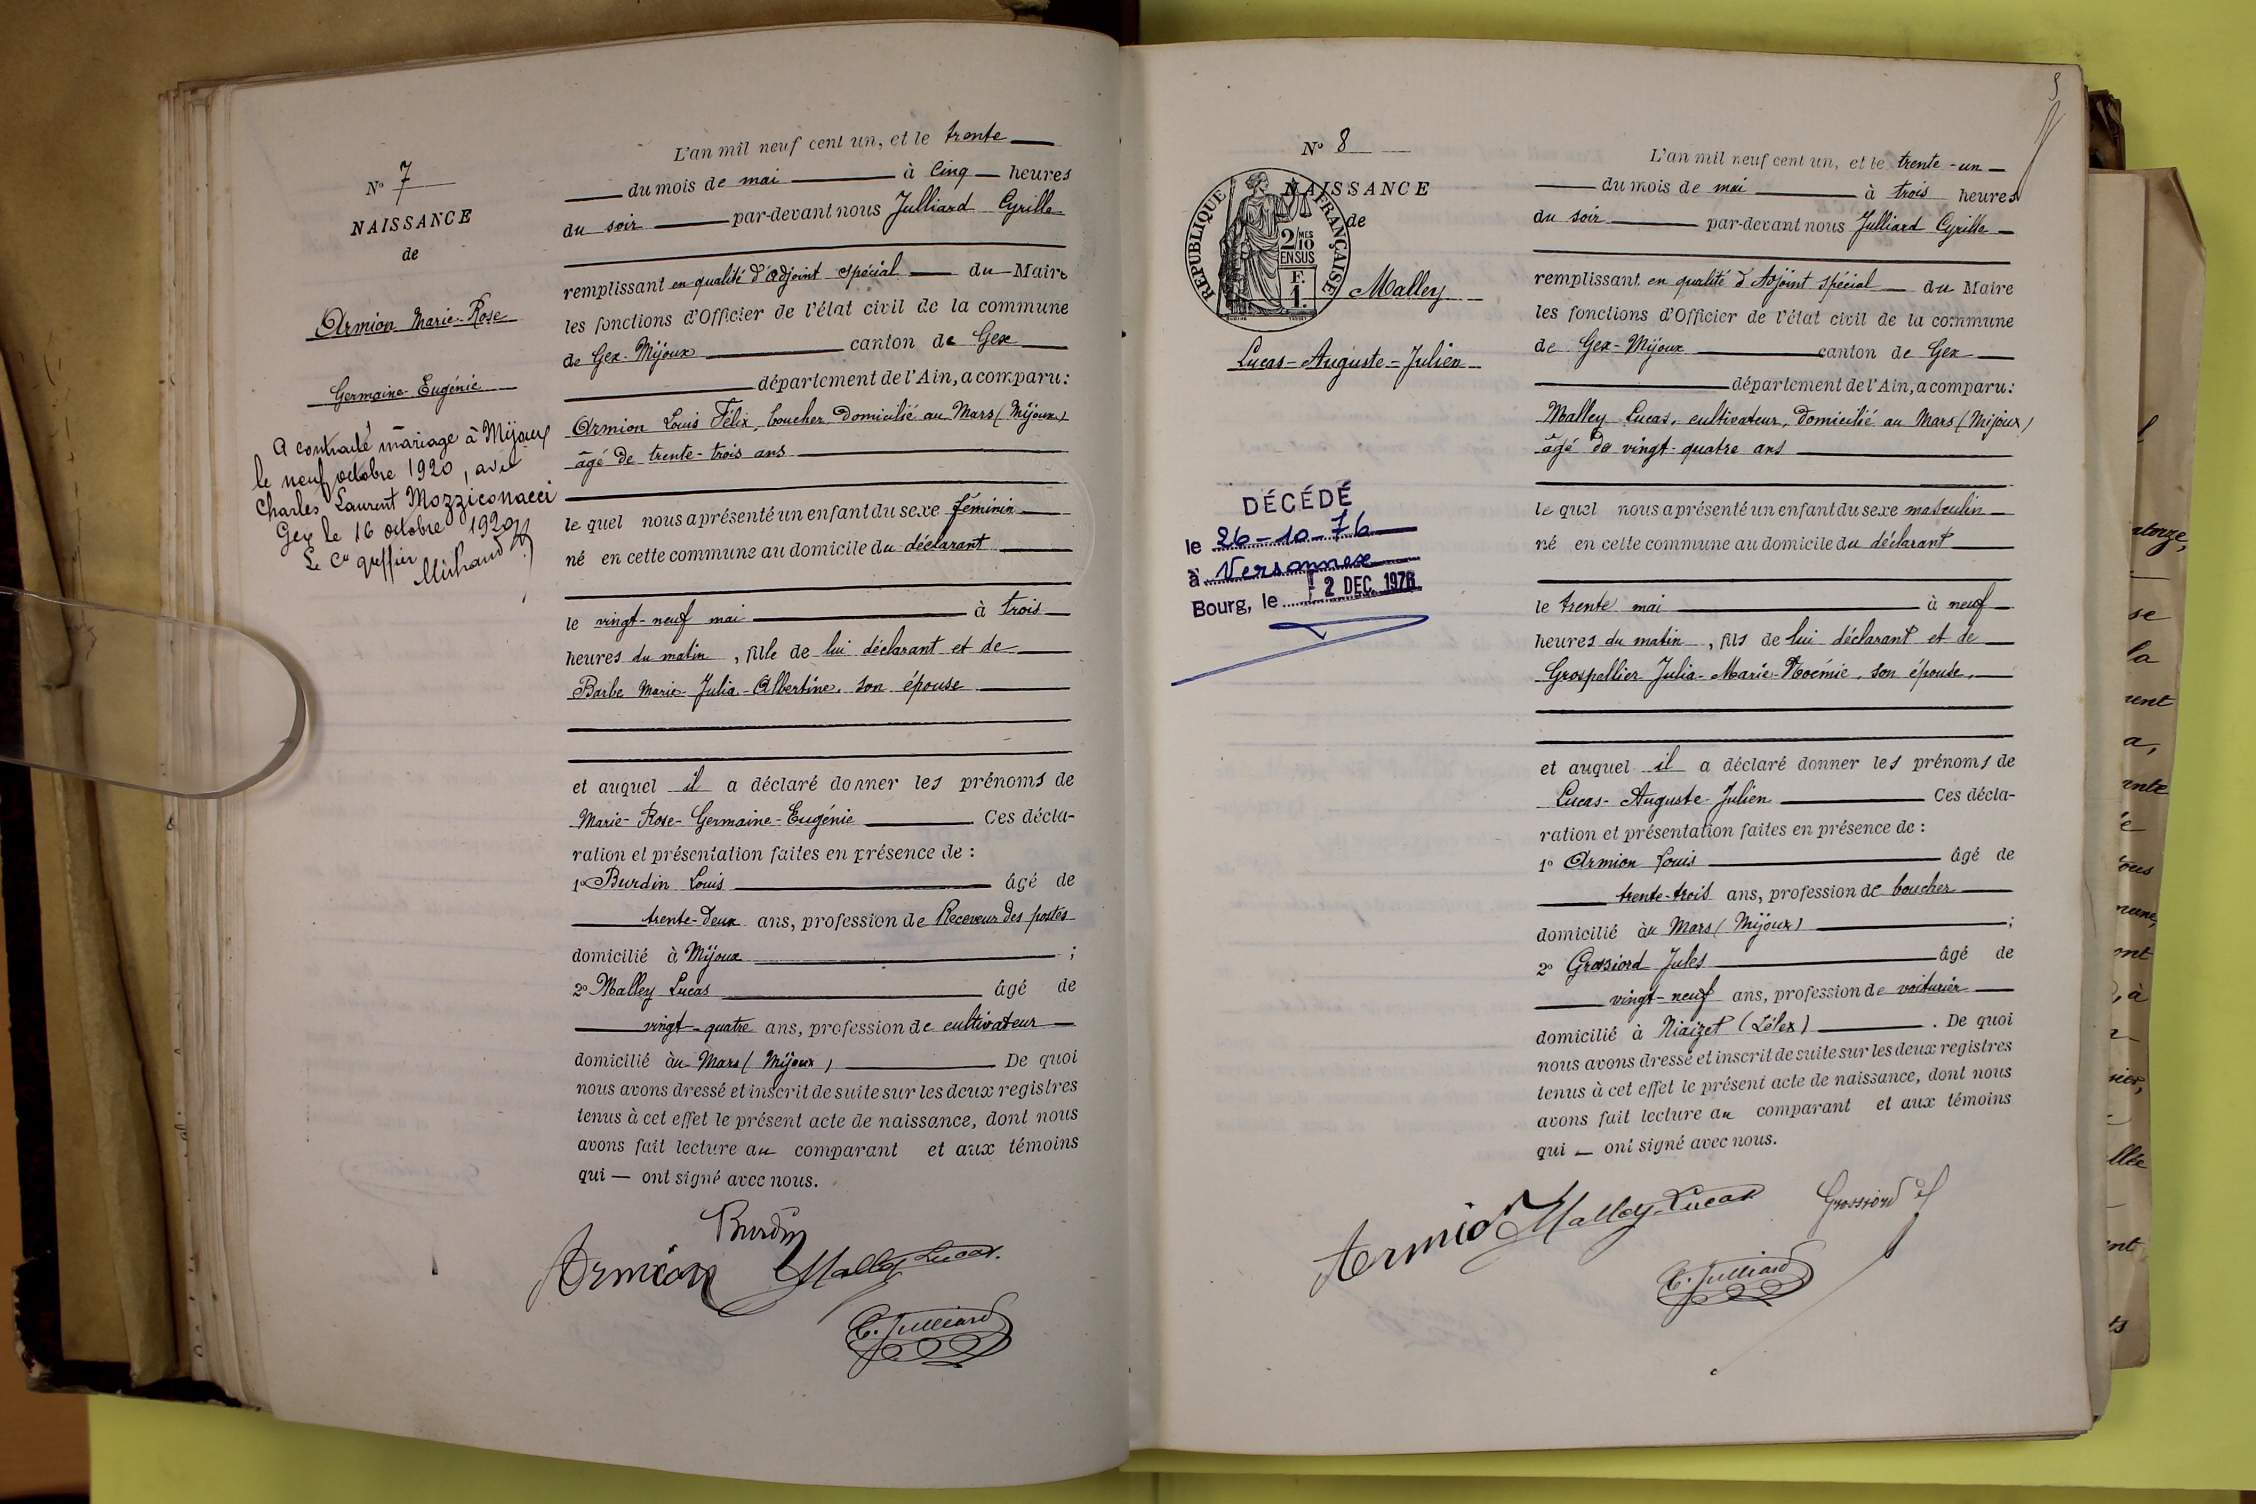 N° 7
NAISSANCE
de
Armion Marie-Rose
Germaine-Eugénie
A contracté mariage à Mijoux
le neuf octobre 1920, avec
Charles Laurent Mozziconacci
Gex le 16 octobre 1920
Le Cis greffier
Michaud
L'an mil neuf cent un, et le trente
du mois de mai à cinq heures
du soir par-devant nous Julliard Cyrille
remplissant en qualité d'Adjoint spécial du Maire
les fonctions d'Officier de l'état civil de la commune
de Gex-Mijoux canton de Gex
département de l'Ain, a comparu:
Armion Louis Félix, boucher, domicilié au Mars (Mijoux)
âgé de trente-trois ans
le quel nous a présenté un enfant du sexe féminin
né en cette commune au domicile du déclarant
le vingt-neuf mai à trois
heures du matin, fille de lui déclarant et de
Barbe Marie-Julia-Albertine, son épouse
et auquel il a déclaré donner les prénoms de
Marie-Rose-Germaine-Eugénie Ces décla-
ration et présentation faites en présence de :
1° Burdin Louis âgé de
trente-deux ans, profession de Receveur des postes
domicilié à Mijoux ;
2° Malley Lucas âgé de
vingt-quatre ans, profession de cultivateur
domicilié àu Mars (Mijoux) De quoi
nous avons dressé et inscrit de suite sur les deux registres
tenus à cet effet le présent acte de naissance, dont nous
avons fait lecture au comparant et aux témoins
qui — ont signé avec nous.
Burdin
Armion Malley Lucas.
C. Julliard
N° 8
NAISSANCE
de
RÉPUBLIQUE FRANÇAISE
2/10 MES
EN SUS
F.
1.
Malley
Lucas-Auguste-Julien
DÉCÉDÉ
le 26-10-76
à Versonnex
Bourg, le 2 DEC. 1976
L'an mil neuf cent un, et le trente-un
du mois de mai à trois heures
du soir par-devant nous Julliard Cyrille
remplissant en qualité d'Adjoint spécial du Maire
les fonctions d'Officier de l'état civil de la commune
de Gex-Mijoux canton de Gex
département de l'Ain, a comparu:
Malley Lucas, cultivateur, domicilié au Mars (Mijoux)
âgé de vingt-quatre ans
le quel nous a présenté un enfant du sexe masculin
né en cette commune au domicile du déclarant
le trente mai à neuf
heures du matin, fils de lui déclarant et de
Grospellier Julia-Marie-Noémie, son épouse,
et auquel il a déclaré donner les prénoms de
Lucas-Auguste-Julien Ces décla-
ration et présentation faites en présence de :
1° Armion Louis âgé de
trente-trois ans, profession de boucher
domicilié àu Mars (Mijoux) ;
2° Grossiord Jules âgé de
vingt-neuf ans, profession de voiturier
domicilié à Niaizet (Lélex) . De quoi
nous avons dressé et inscrit de suite sur les deux registres
tenus à cet effet le présent acte de naissance, dont nous
avons fait lecture au comparant et aux témoins
qui — ont signé avec nous.
Armion Malley Lucas Grossiord J
C. Julliard